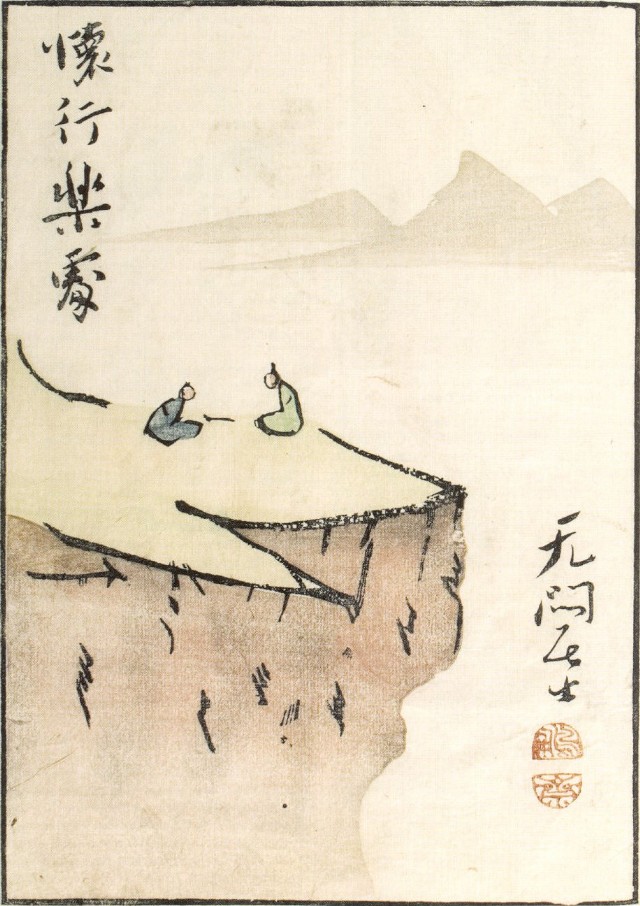 懷行樂處
无悶居士